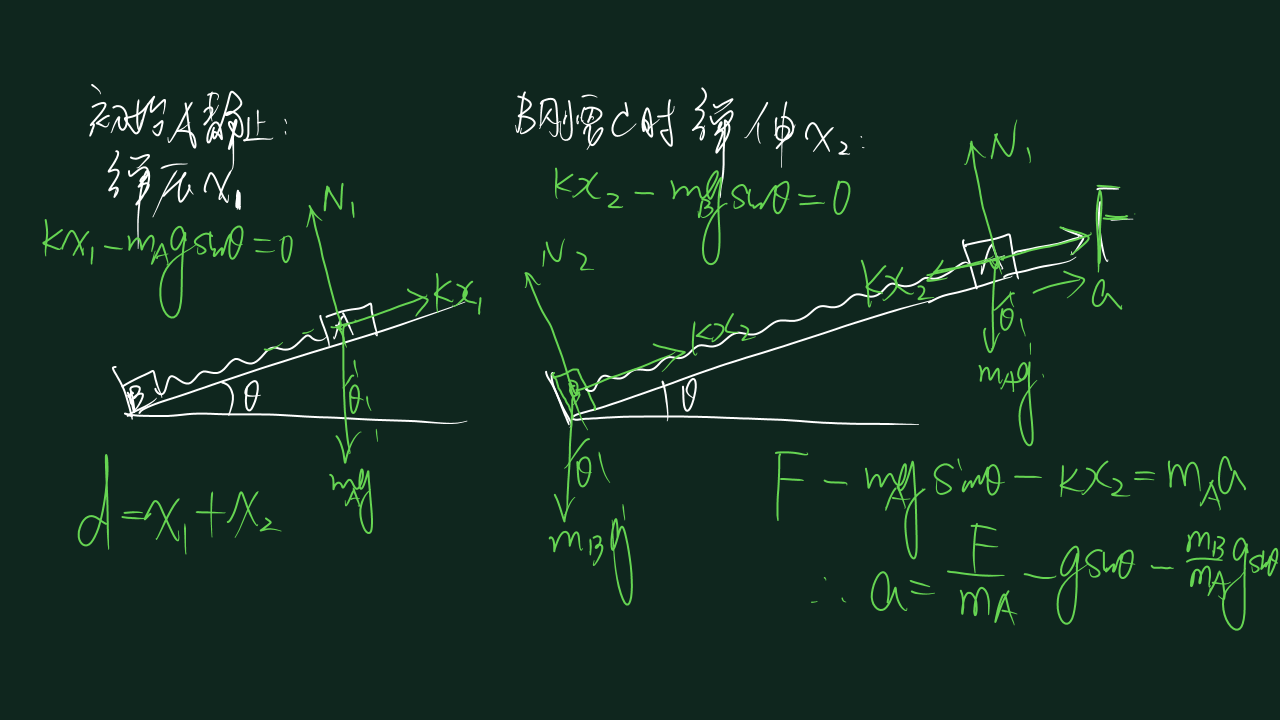 初始A静止:
弹压x₁
kx₁-m_Ag sinθ=0
N₁
kx₁
A
B
θ
θ
m_Ag
d=x₁+x₂
B刚离C时弹伸x₂:
kx₂-m_Bg sinθ=0
N₁
F
N₂
kx₂
A
a
kx₂
θ
m_Ag
B
θ
θ
m_Bg
F-m_Ag sinθ-kx₂=m_Aa
∴ a=F/m_A-g sinθ-m_B/m_A g sinθ